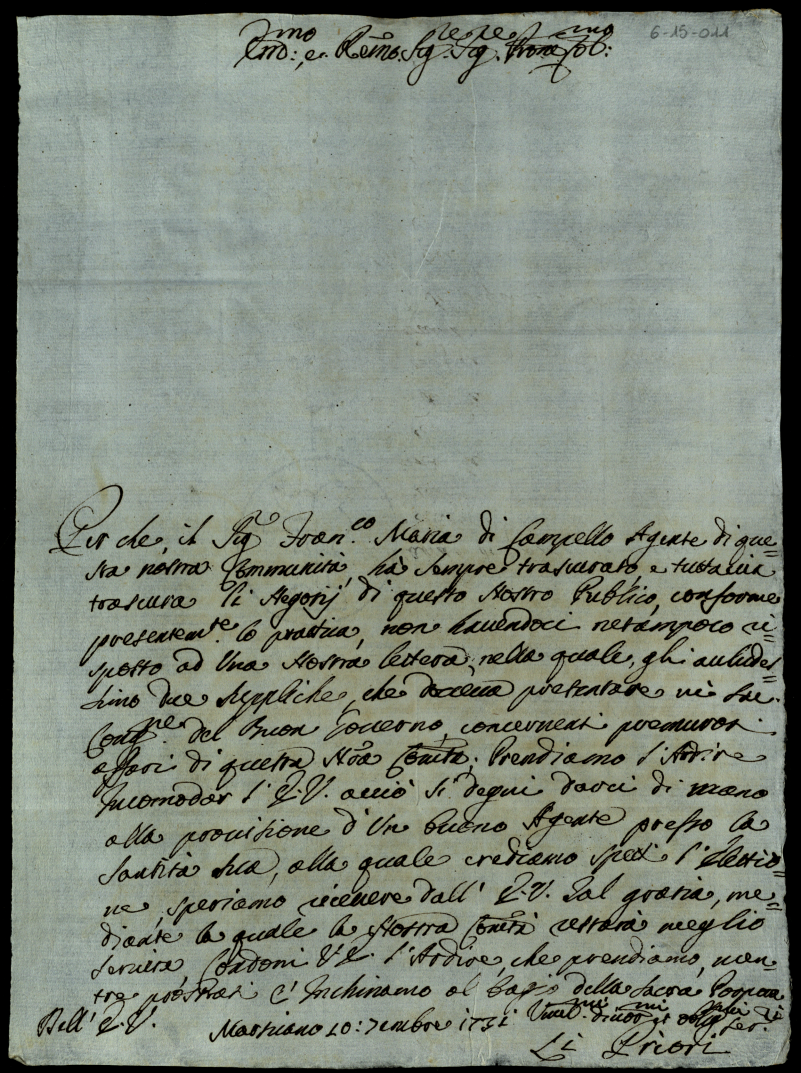 6-15-011
Emo: e Remo Sig.re Sig.re Prone Col:mo
Per che il Sig.r Fran.co Maria di Campello Agente di que=
sta nostra Communità, hà sempre trascurato, e tuttavia
trascura li Negotij di questo Nostro Publico, conforme
presentem.te lo prattica, non havendoci netampoco ri=
sposto ad Una Nostra lettera, nella quale, gli
due suppliche, che doveva presentare in Sac.
Cong.ne del Buon Governo, concernenti premurosi
affari di questa Nrã Comtà; Prendiamo l'Ardire
Incomodar l'E.V. acciò si degni darci di mano
alla provisione d'Un buono Agente presso la
Santità Sua, alla quale crediamo spetti l'Elettio=
ne, speriamo ricevere dall'E.V. Tal gratia, me=
diante la quale la Nostra Comtà restarà meglio
servita, Condoni V.E. l'Ardire, che prendiamo, men=
tre prostrati c'Inchiniamo al bagio della Sacra Porpora
Dell'E.V. Marsciano 10: 7embre 1731 Umil.mi divot.mi et oblig.mi Ser.ri
Li Priori